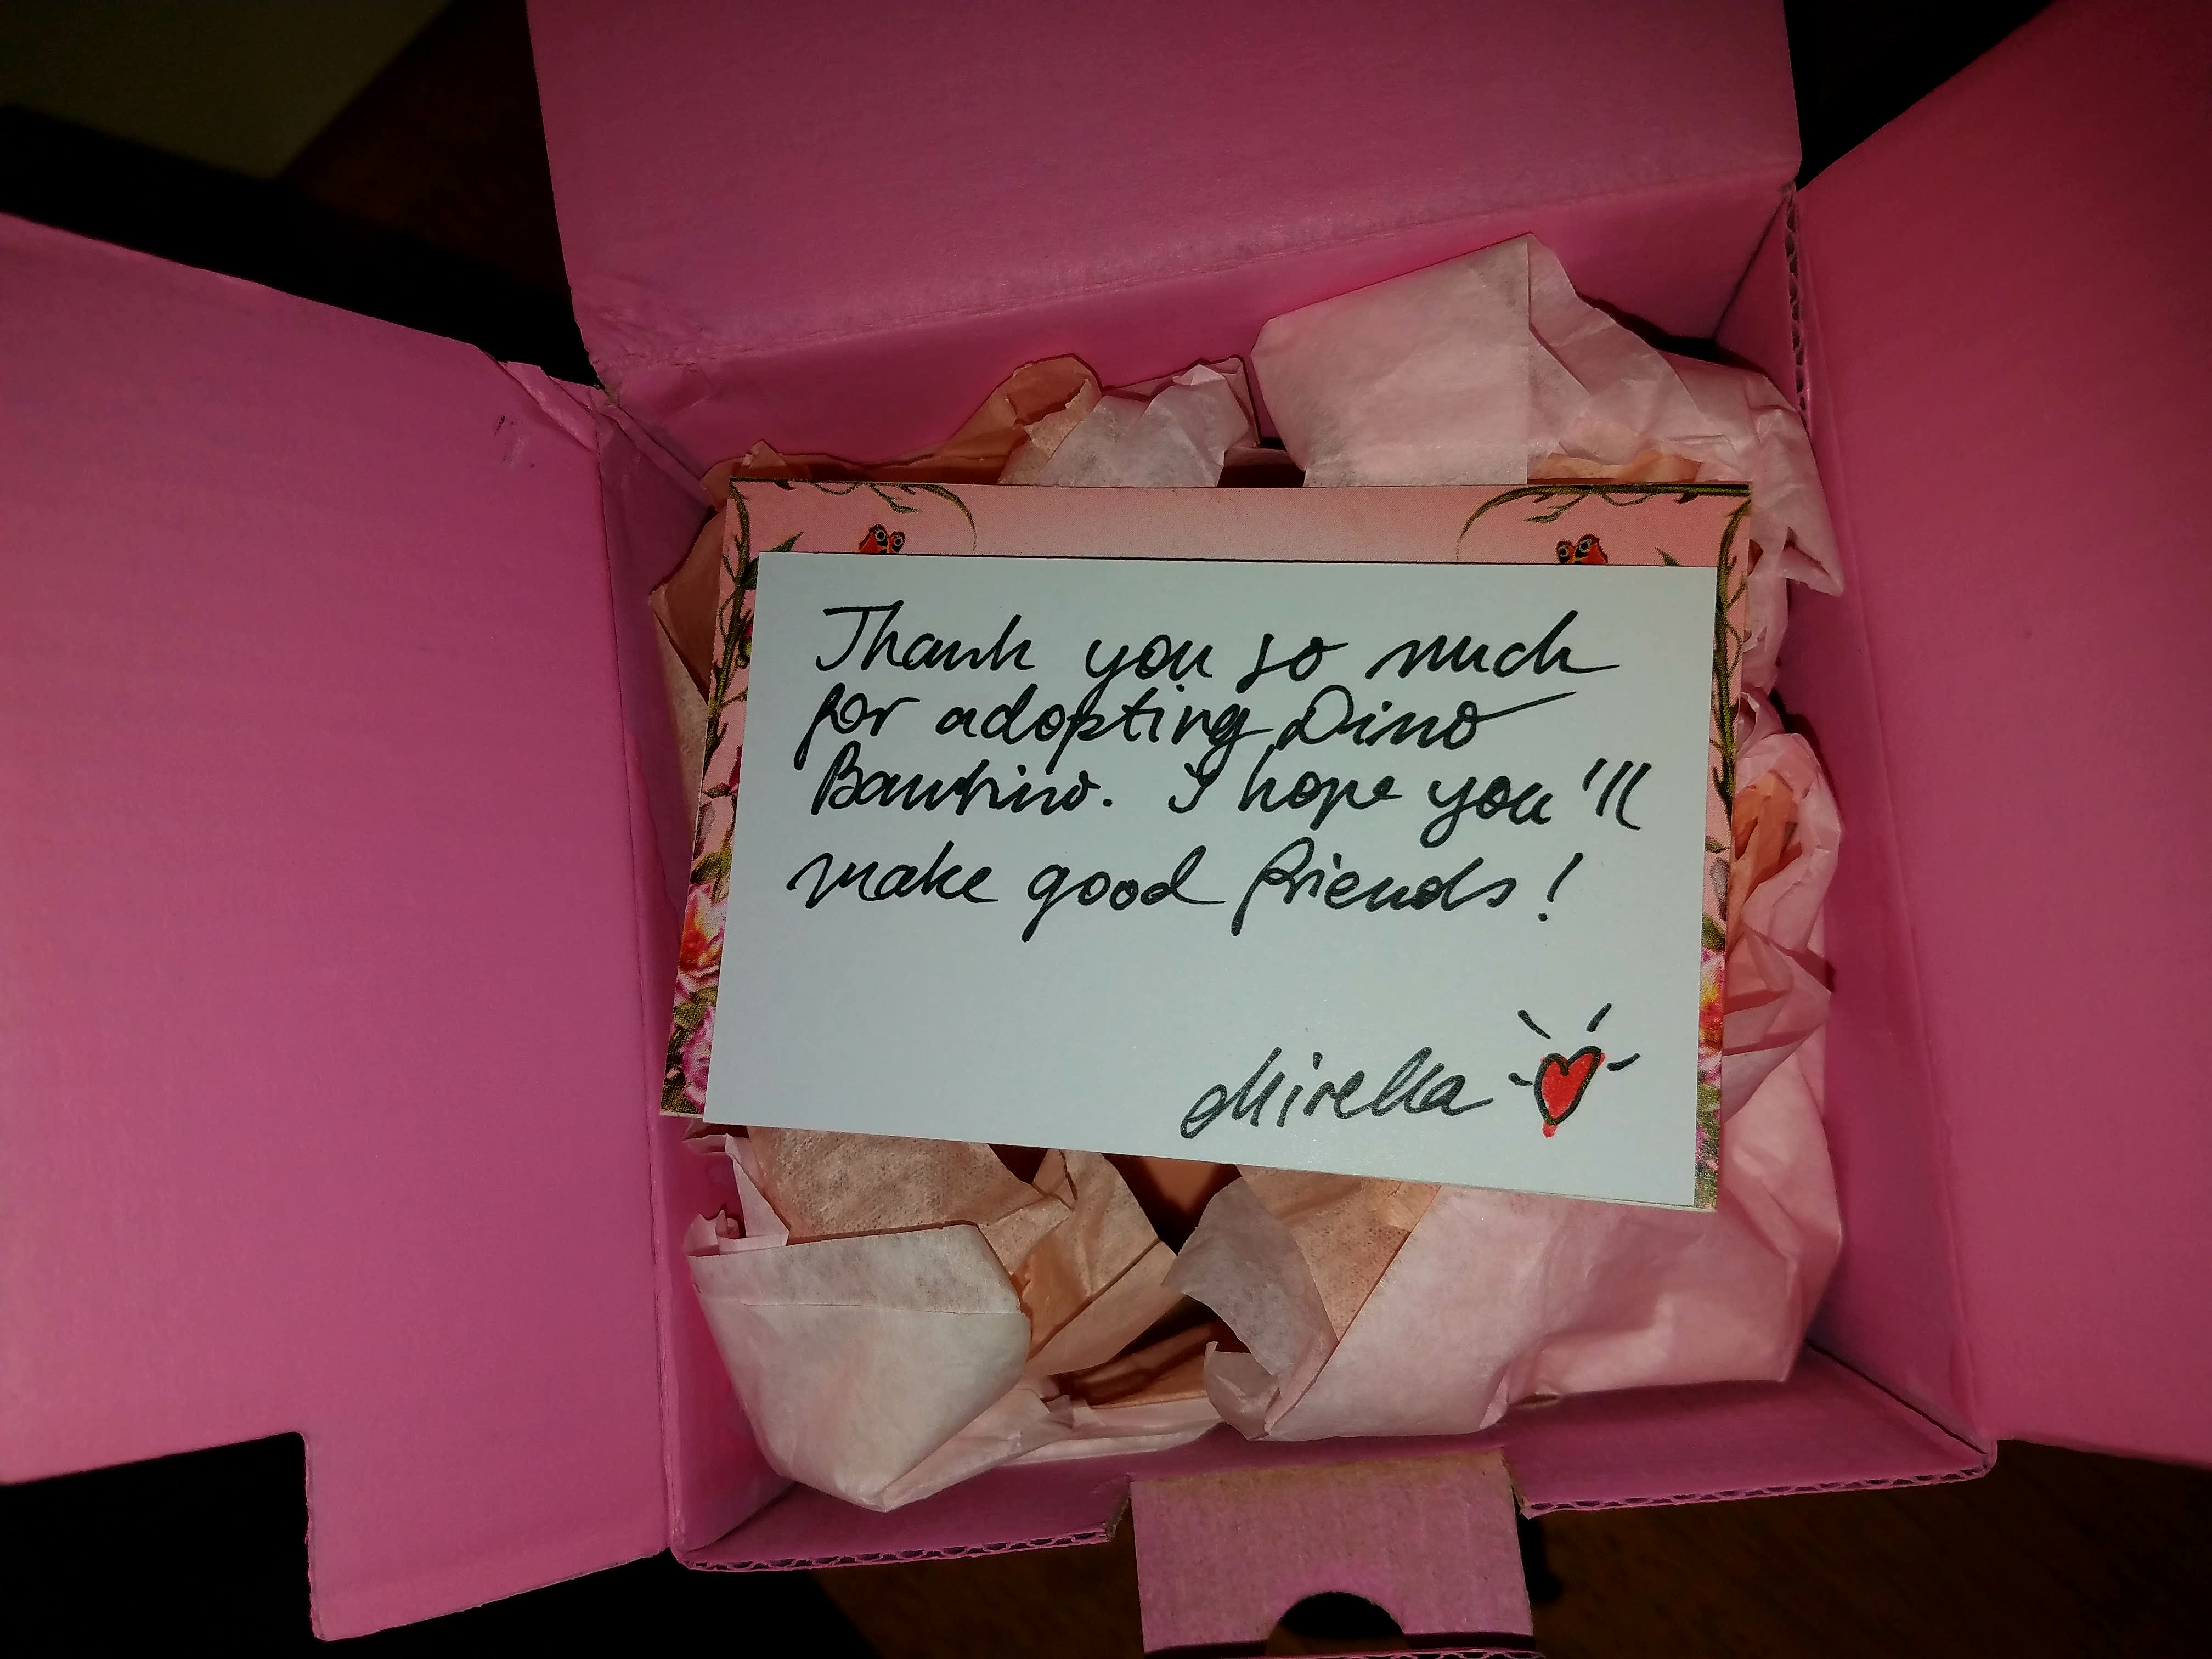 Thank you so much
for adopting Dino
Bambino. I hope you'll
make good friends!
Mirella